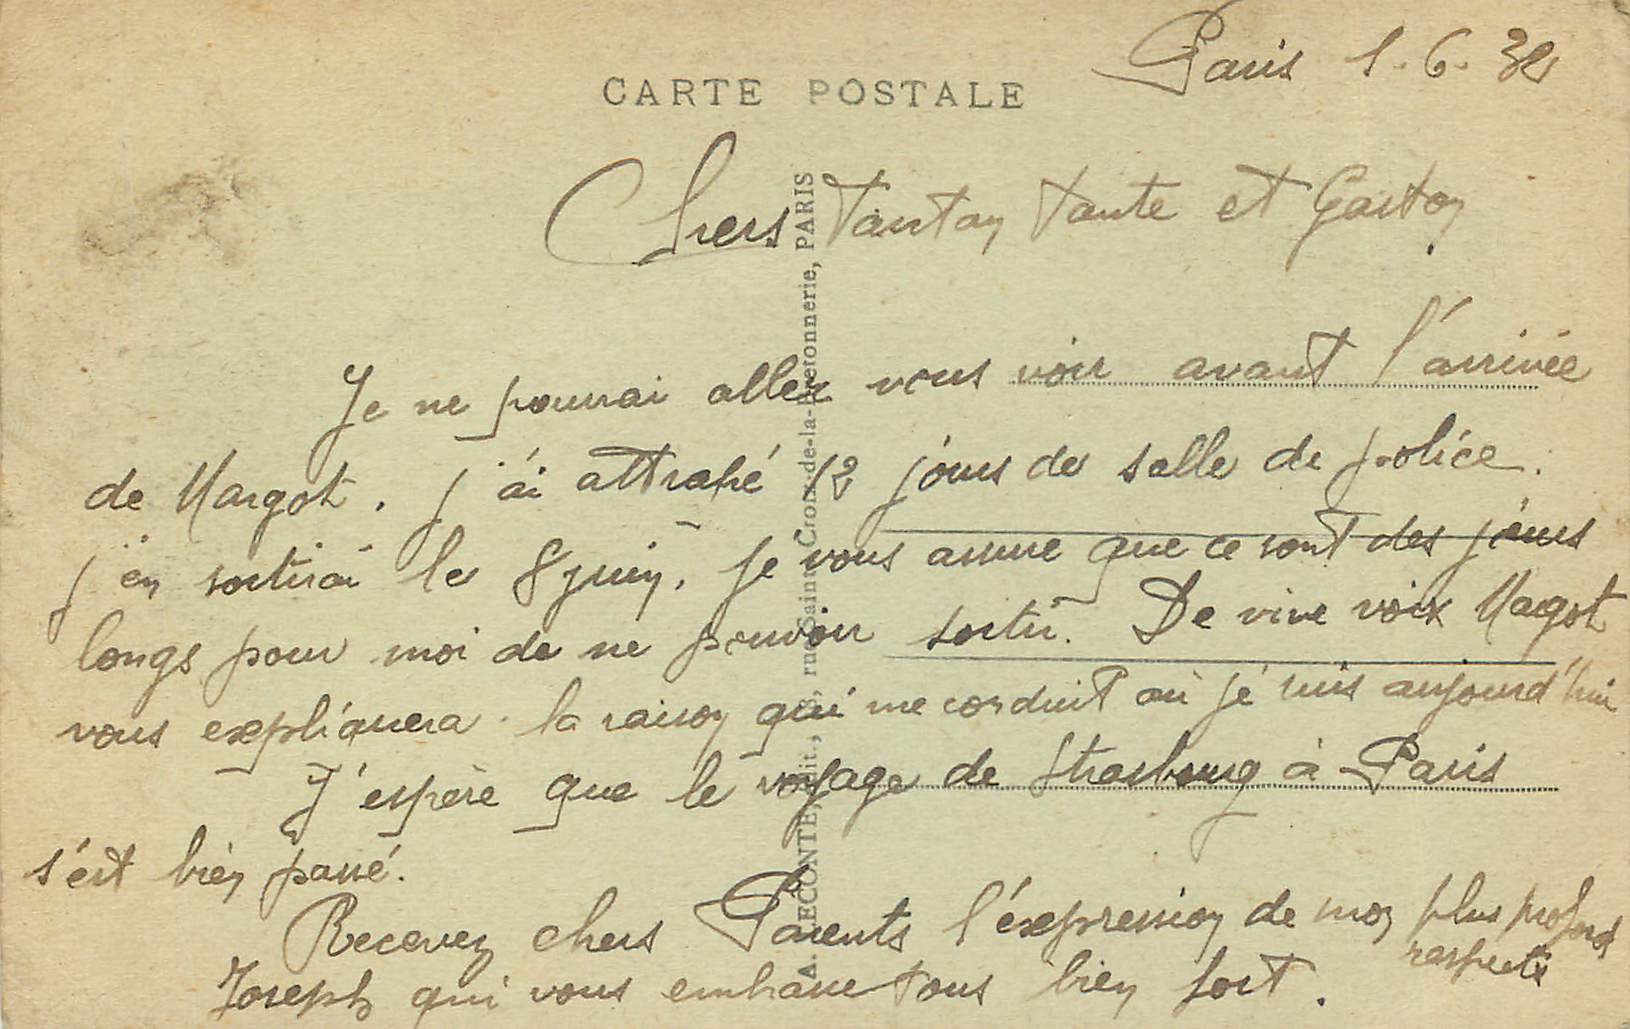 Paris 1.6.32
CARTE POSTALE
Chers Tanton Tante et Gaston
Je ne pourrai aller vous voir avant l'arrivée
de Margot. j'ai attrapé 12 jours de salle de police.
j'en sortirai le 8 juin. Je vous assure que ce sont des jours
longs pour moi de ne pouvoir sortir. De vive voix Margot
vous expliquera la raison qui me conduit où je suis aujourd'hui
J'espère que le voyage de Strasbourg à Paris
s'est bien passé.
Recevez chers Parents l'expression de mon plus profond
respects
Joseph qui vous embrasse tous bien fort.
A. LECONTE, Edit., rue Sainte Croix-de-la-Bretonnerie, PARIS